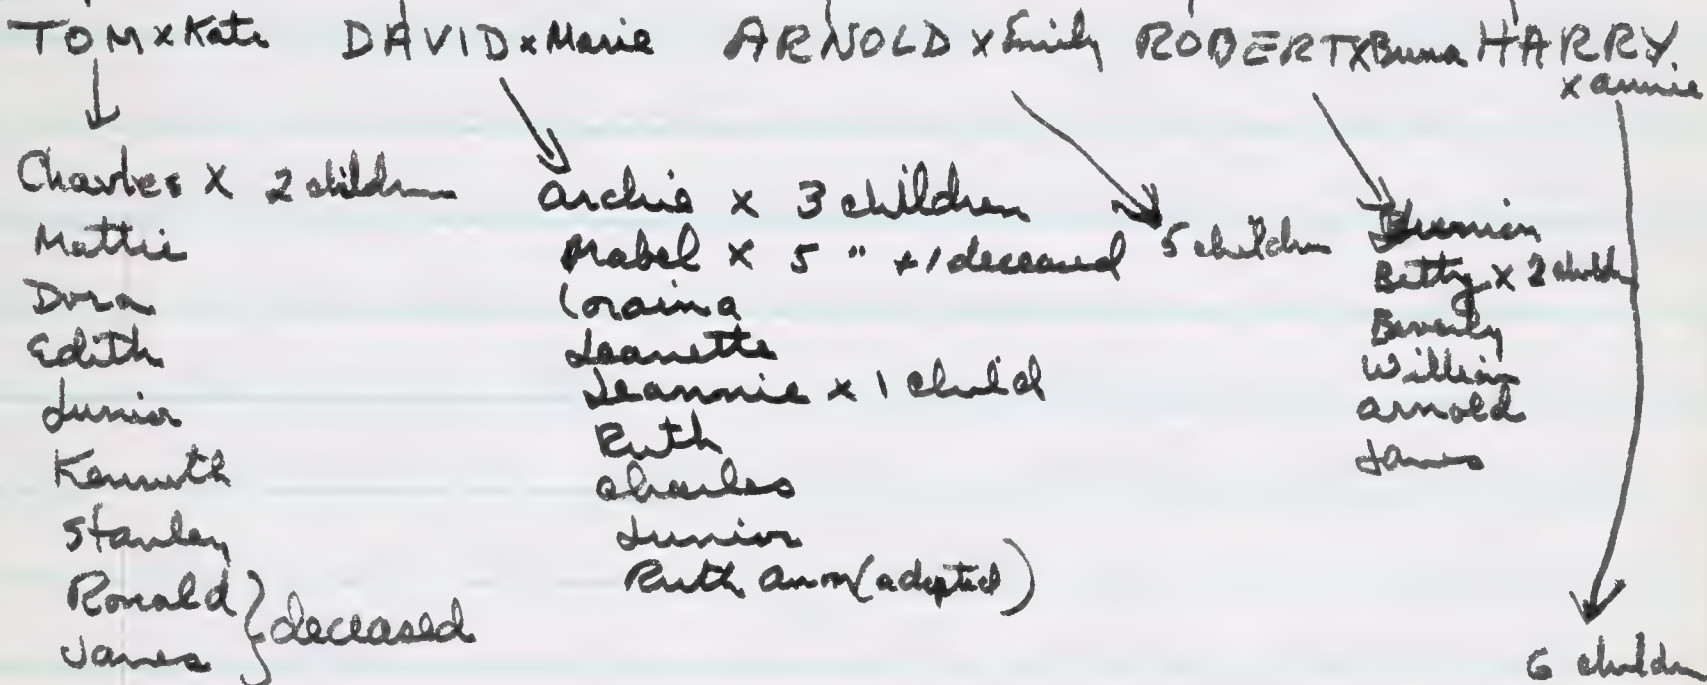 TOM x Kate
DAVID x Marie
ARNOLD x Emily
ROBERT X Buna
HARRY
x Annie
Charles X 2 children
Mattie
Dora
Edith
Junior
Kenneth
Stanley
Ronald
James
} deceased
Archie x 3 children
Mabel x 5 " + 1 deceased
Loraina
Jeanette
Jeannie x 1 child
Ruth
Charles
Junior
Ruth Ann (adopted)
5 children
Betty x 2 children
Beverly
William
Arnold
James
6 children